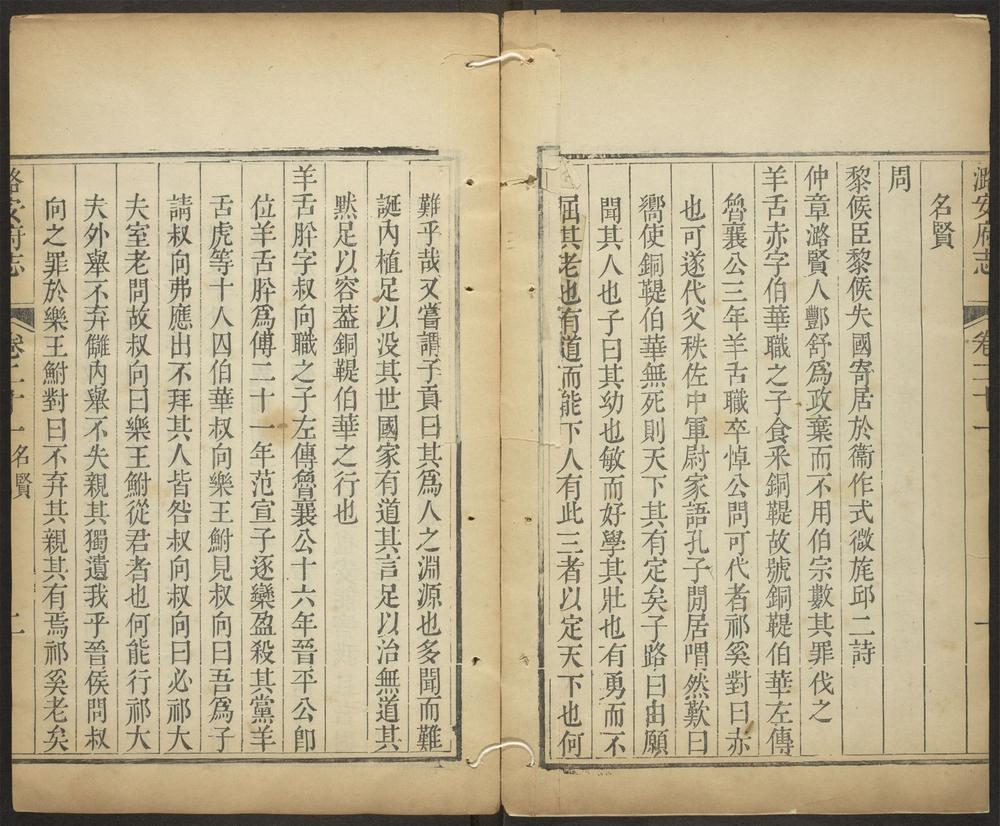 潞安府志 卷二十一 一
名賢
周
黎侯臣黎侯失國寄居於衞作式微旄邱二詩
仲章潞賢人酆舒爲政棄而不用伯宗數其罪伐之
羊舌赤字伯華職之子食采銅鞮故號銅鞮伯華左傳
魯襄公三年羊舌職卒悼公問可代者祁奚對曰赤
也可遂代父秩佐中軍尉家語孔子閒居喟然歎曰
嚮使銅鞮伯華無死則天下其有定矣子路曰由願
聞其人也子曰其幼也敏而好學其壯也有勇而不
屈其老也有道而能下人有此三者以定天下也何
難乎哉又嘗謂子貢曰其爲人之淵源也多聞而難
誕內植足以没其世國家有道其言足以治無道其
默足以容葢銅鞮伯華之行也
羊舌肸字叔向職之子左傳魯襄公十六年晉平公卽
位羊舌肸爲傅二十一年范宣子逐欒盈殺其黨羊
舌虎等十人囚伯華叔向樂王鮒見叔向曰吾爲子
請叔向弗應出不拜其人皆咎叔向叔向曰必祁大
夫室老問故叔向曰樂王鮒從君者也何能行祁大
夫外舉不弃讎內舉不失親其獨遺我乎晉侯問叔
向之罪於樂王鮒對曰不弃其親其有焉祁奚老矣
潞安府志 卷二十一 名賢 二